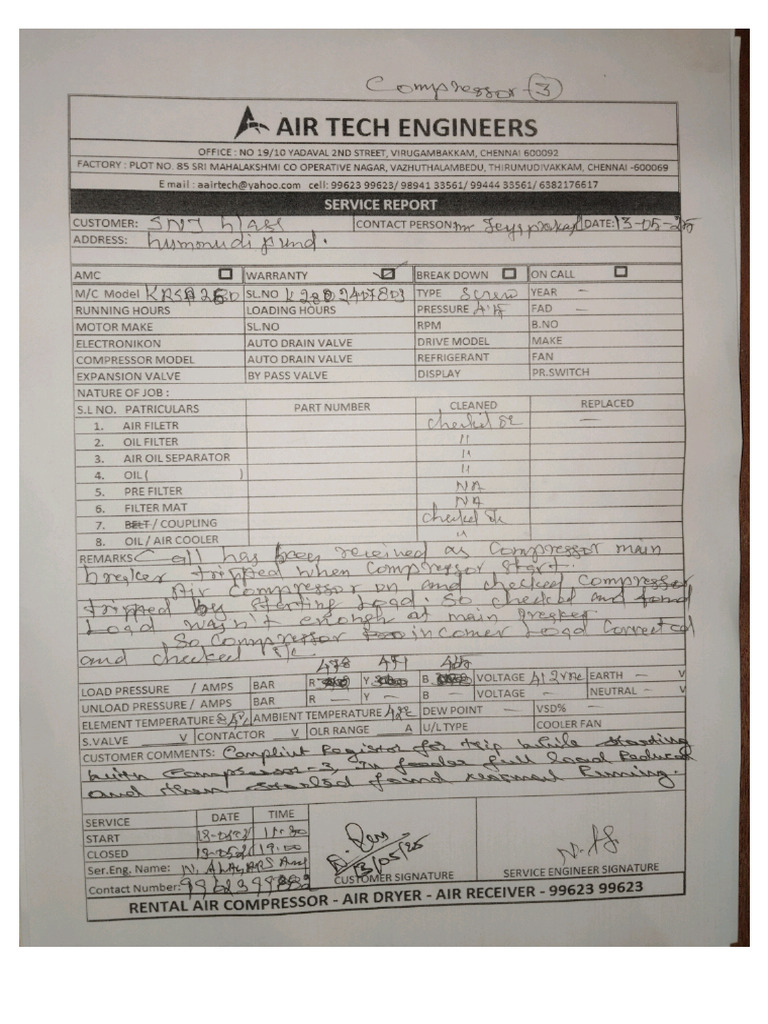 Compressor - 3
AIR TECH ENGINEERS
OFFICE : NO 19/10 YADAVAL 2ND STREET, VIRUGAMBAKKAM, CHENNAI 600092
FACTORY : PLOT NO. 85 SRI MAHALAKSHMI CO OPERATIVE NAGAR, VAZHUTHALAMBEDU, THIRUMUDIVAKKAM, CHENNAI -600069
Email : aairtech@yahoo.com cell: 99623 99623/ 98941 33561/ 99444 33561/ 6382176617
SERVICE REPORT
CUSTOMER: SNJ CONTACT PERSON: mr DATE: 13-05-25
ADDRESS:
AMC WARRANTY BREAK DOWN ON CALL
M/C Model SL.NO TYPE Screw YEAR -
RUNNING HOURS LOADING HOURS PRESSURE FAD -
MOTOR MAKE SL.NO RPM B.NO
ELECTRONIKON AUTO DRAIN VALVE DRIVE MODEL MAKE
COMPRESSOR MODEL AUTO DRAIN VALVE REFRIGERANT FAN
EXPANSION VALVE BY PASS VALVE DISPLAY PR.SWITCH
NATURE OF JOB :
S.L NO. PATRICULARS PART NUMBER CLEANED REPLACED
1. AIR FILETR checked -
2. OIL FILTER "
3. AIR OIL SEPARATOR "
4. OIL ( ) "
5. PRE FILTER NA
6. FILTER MAT NA
7. BELT / COUPLING checked
8. OIL / AIR COOLER "
REMARKS Call has been received as Compressor main
breaker tripped when Compressor start.
Air Compressor on and checked Compressor
tripped by starting Load. So checked and found
Load wasn't enough at main breaker
So Compressor incomer Load Corrected
and checked
478 471 468
LOAD PRESSURE / AMPS BAR R Y B VOLTAGE EARTH - V
UNLOAD PRESSURE / AMPS BAR R - Y - B - VOLTAGE - NEUTRAL - V
ELEMENT TEMPERATURE AMBIENT TEMPERATURE DEW POINT - VSD% -
S.VALVE V CONTACTOR V OLR RANGE A U/L TYPE COOLER FAN
CUSTOMER COMMENTS: Complint Registor for trip while starding
with Compressor-3, In feeder full load Reduced
and then started found normal Running.
SERVICE DATE TIME
START 11.30
CLOSED 19.00
Ser.Eng. Name:
Contact Number:
13/05/25
CUSTOMER SIGNATURE SERVICE ENGINEER SIGNATURE
RENTAL AIR COMPRESSOR - AIR DRYER - AIR RECEIVER - 99623 99623